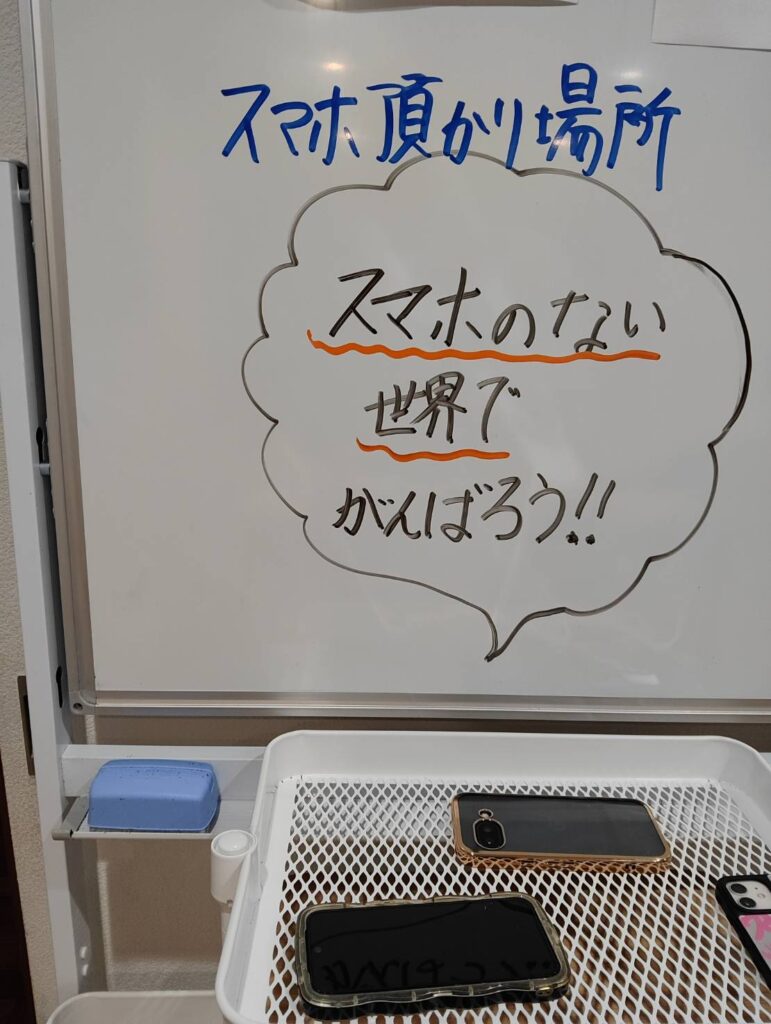 スマホ頂かり場所
スマホのない
世界で
がんばろう!!